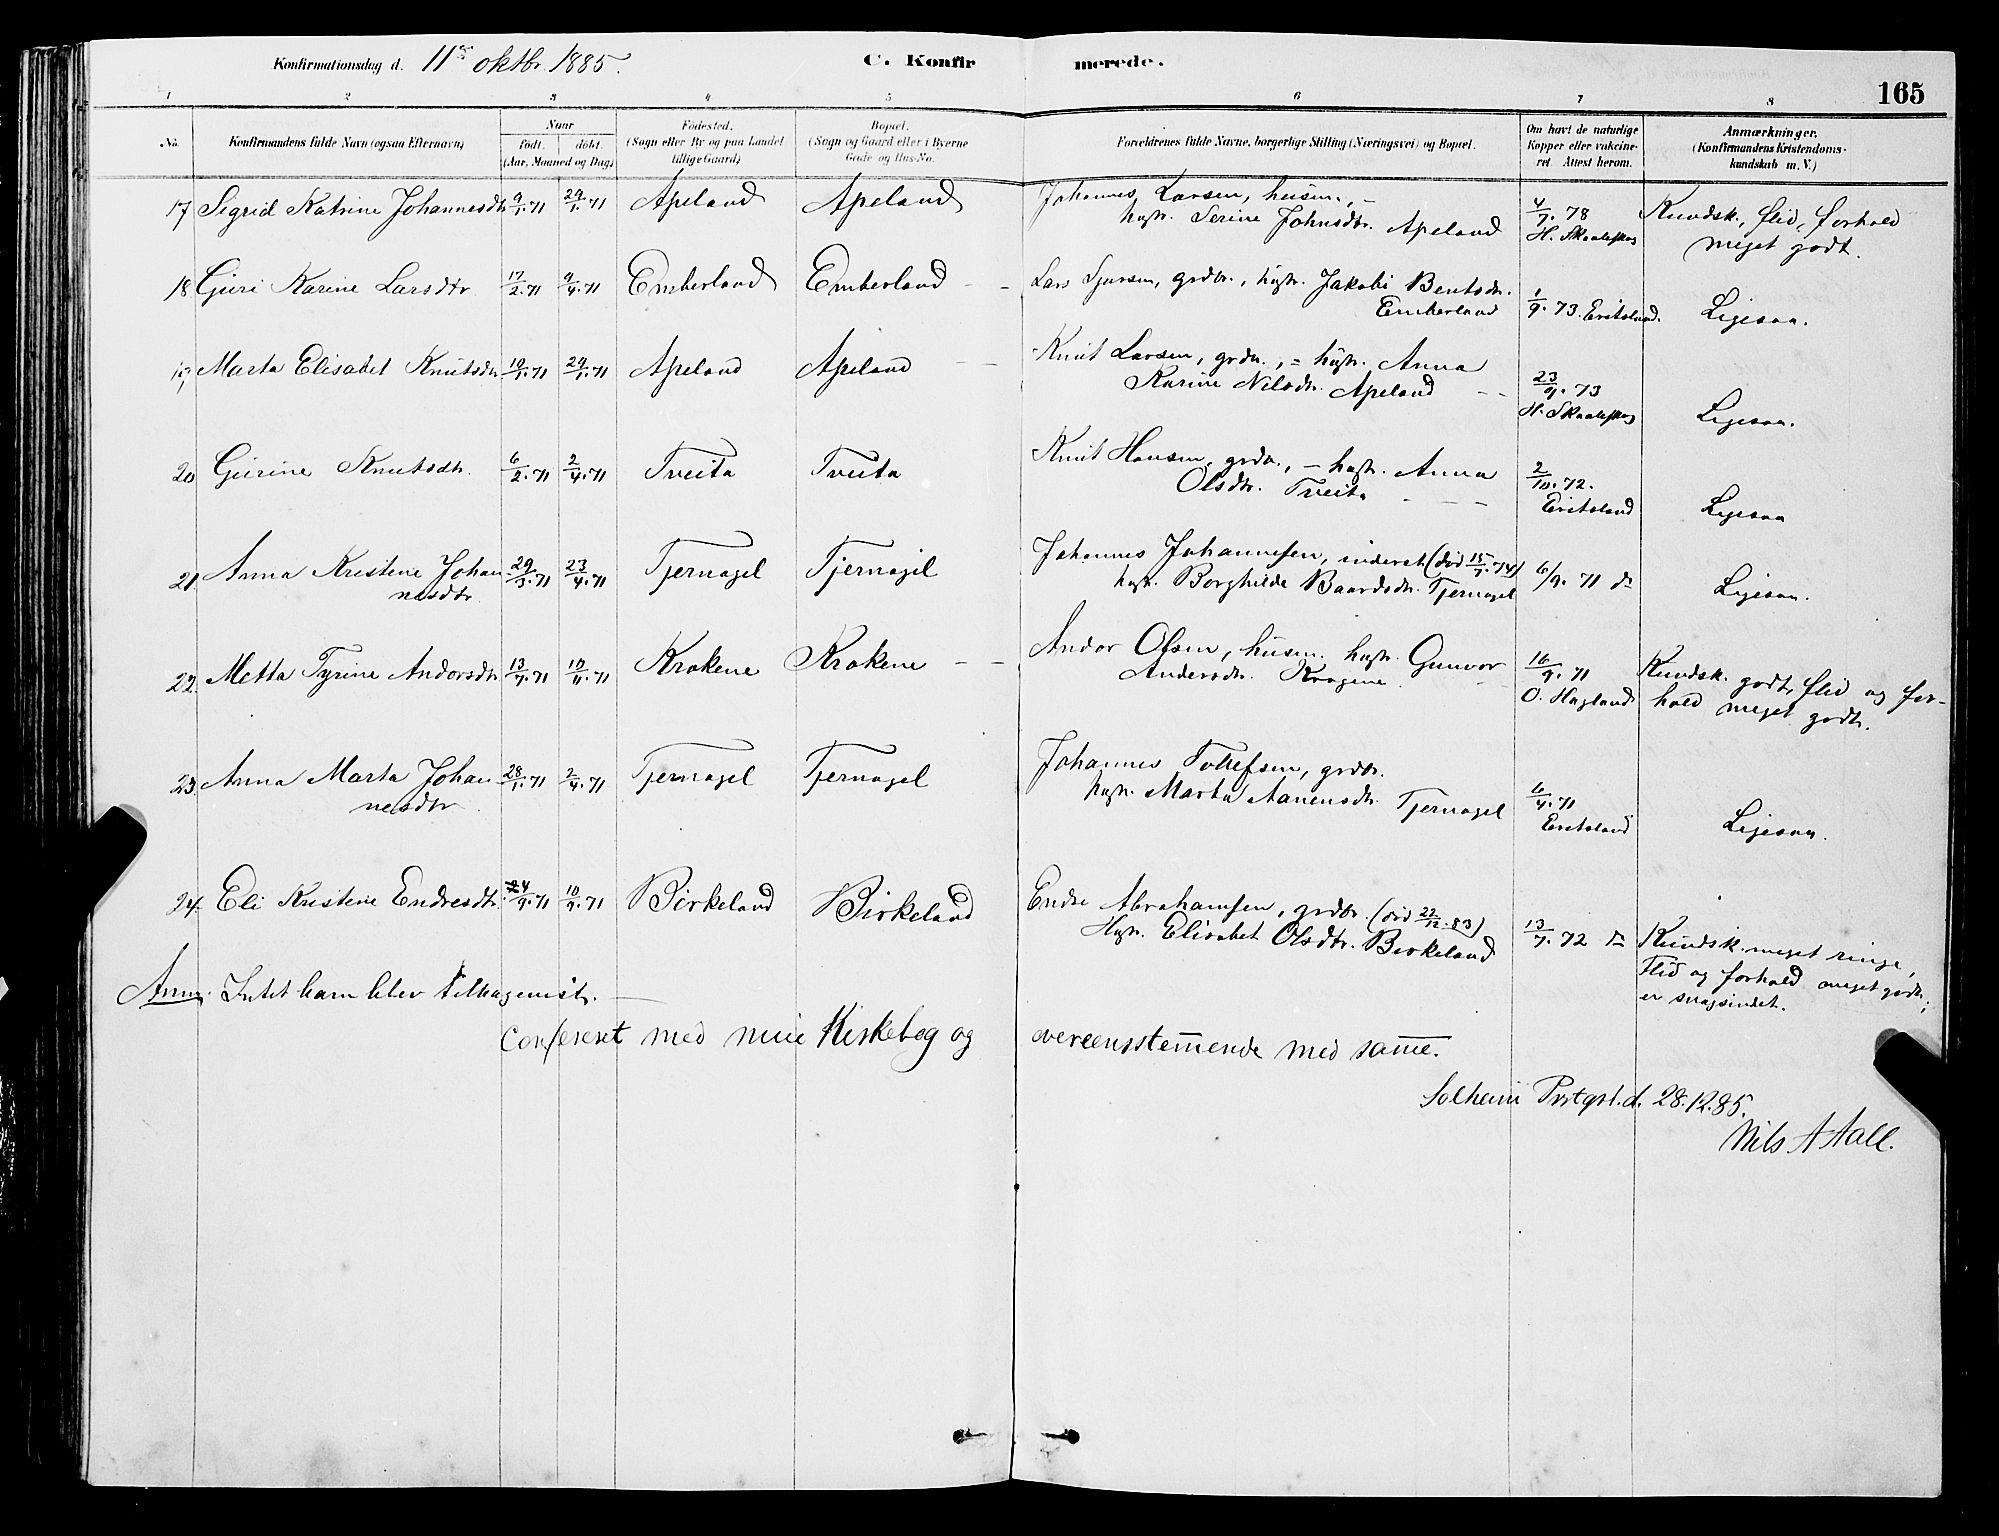 Konfirmationsdag d. 11te oktbr. 1885. C. Konfirmerede. 165
1 2 3 4 5 6 7 8
No. Konfirmandens fulde Navn (ogsaa Efternavn) Naar født. døbt. (Aar, Maaned og Dag) Fødested. (Sogn eller By og paa Landet tillige Gaard) Bopæl. (Sogn og Gaard eller i Byerne Gade og Hus-No. Forældrenes fulde Navne, borgerlige Stilling (Næringsvei) og Bopæl. Om havt de naturlige Kopper eller vakcineret. Attest herom. Anmærkninger. (Konfirmandens Kristendomskundskab m. V.)
17 Sigrid Katrine Johannesdtr 9/1.71 29/1.71 Apeland Apeland Johannes Larsen, husm., – Kundsk., flid, forhold
hustr. Serine Johnsdtr. Apeland 4/7.78 H. Skaaleskog meget godt.
18 Guri Karine Larsdtr 17/2.71 9/4.71 Emberland Emberland Lars Sjursen, grdbr., hustr. Jakobi Bentsdr.
Emberland 1/9.73. Eritsland. Ligesaa.
19 Marta Elisabet Knutsdtr 10/1.71 29/1.71 Apeland Apeland Knut Larsen, grdbr., = hustr. Anna
Karine Nilsdtr. Apeland 23/9.73 H. Skaaleskog Ligesaa.
20 Gurine Knutsdtr. 6/2.71 2/4.71 Tveita Tveita Knut Hansen, grdbr., – hustr. Anna
Olsdtr. Tveita 2/10.72. Eritsland Ligesaa
21 Anna Kristine Johan 29/3.71 23/4.71 Tjernagel Tjernagel Johannes Johannessen, inderst (død 15/7.74)
nesdtr. hustr. Borghilde Baardsdtr. Tjernagel 6/9.71 do Ligesaa.
22 Metta Tyrine Andorsdtr 13/9.71 19/11.71 Krokene Krokene Andor Olsen, husm. hustr. Gunvor
Andersdtr. Krogene 16/9.71 O. Hagland Kundsk. godt, flid og for-
hold meget godt.
23 Anna Marta Johan 28/1.71 2/4.71 Tjernagel Tjernagel Johannes Tollefsen, grdbr.
nesdtr hustr. Marta Aanensdtr. Tjernagel 6/4.71 Eritsland Ligesaa.
24 Eli Kristine Endresdtr. 4/9.71 10/9.71 Birkeland Birkeland Endre Abrahamsen, grdbr. (død 22/12.83)
Hustr. Elisabet Olsdtr. Birkeland 13/7.72 do Kundsk. meget ringe,
Flid og forhold meget godt;
er svagsindet.
Anm. Intet barn blev tilbagevist.
Confereret med min Kirkebog og overeensstemmende med samme.
Solheim Prstgrd. d. 28.12.85.
Nils A Aall.